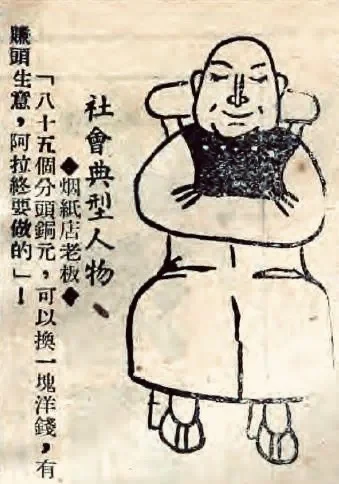 社會典型人物
◆烟紙店老板◆
「八十五個分頭銅元，可以換一塊洋錢，有
賺頭生意，阿拉終要做的」！